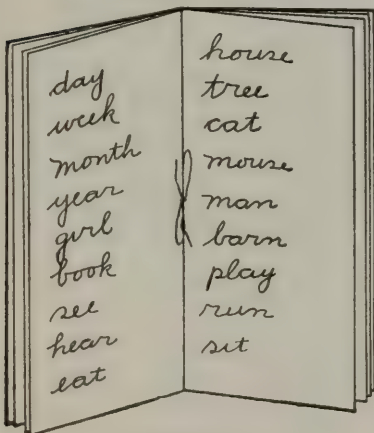 day
week
month
year
girl
book
see
hear
eat
house
tree
cat
mouse
man
barn
play
run
sit